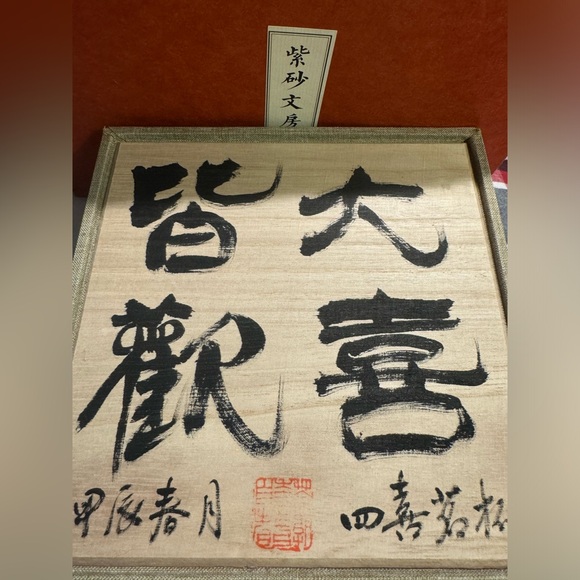 紫砂文房
皆大
歡喜
甲辰春月
四喜茗